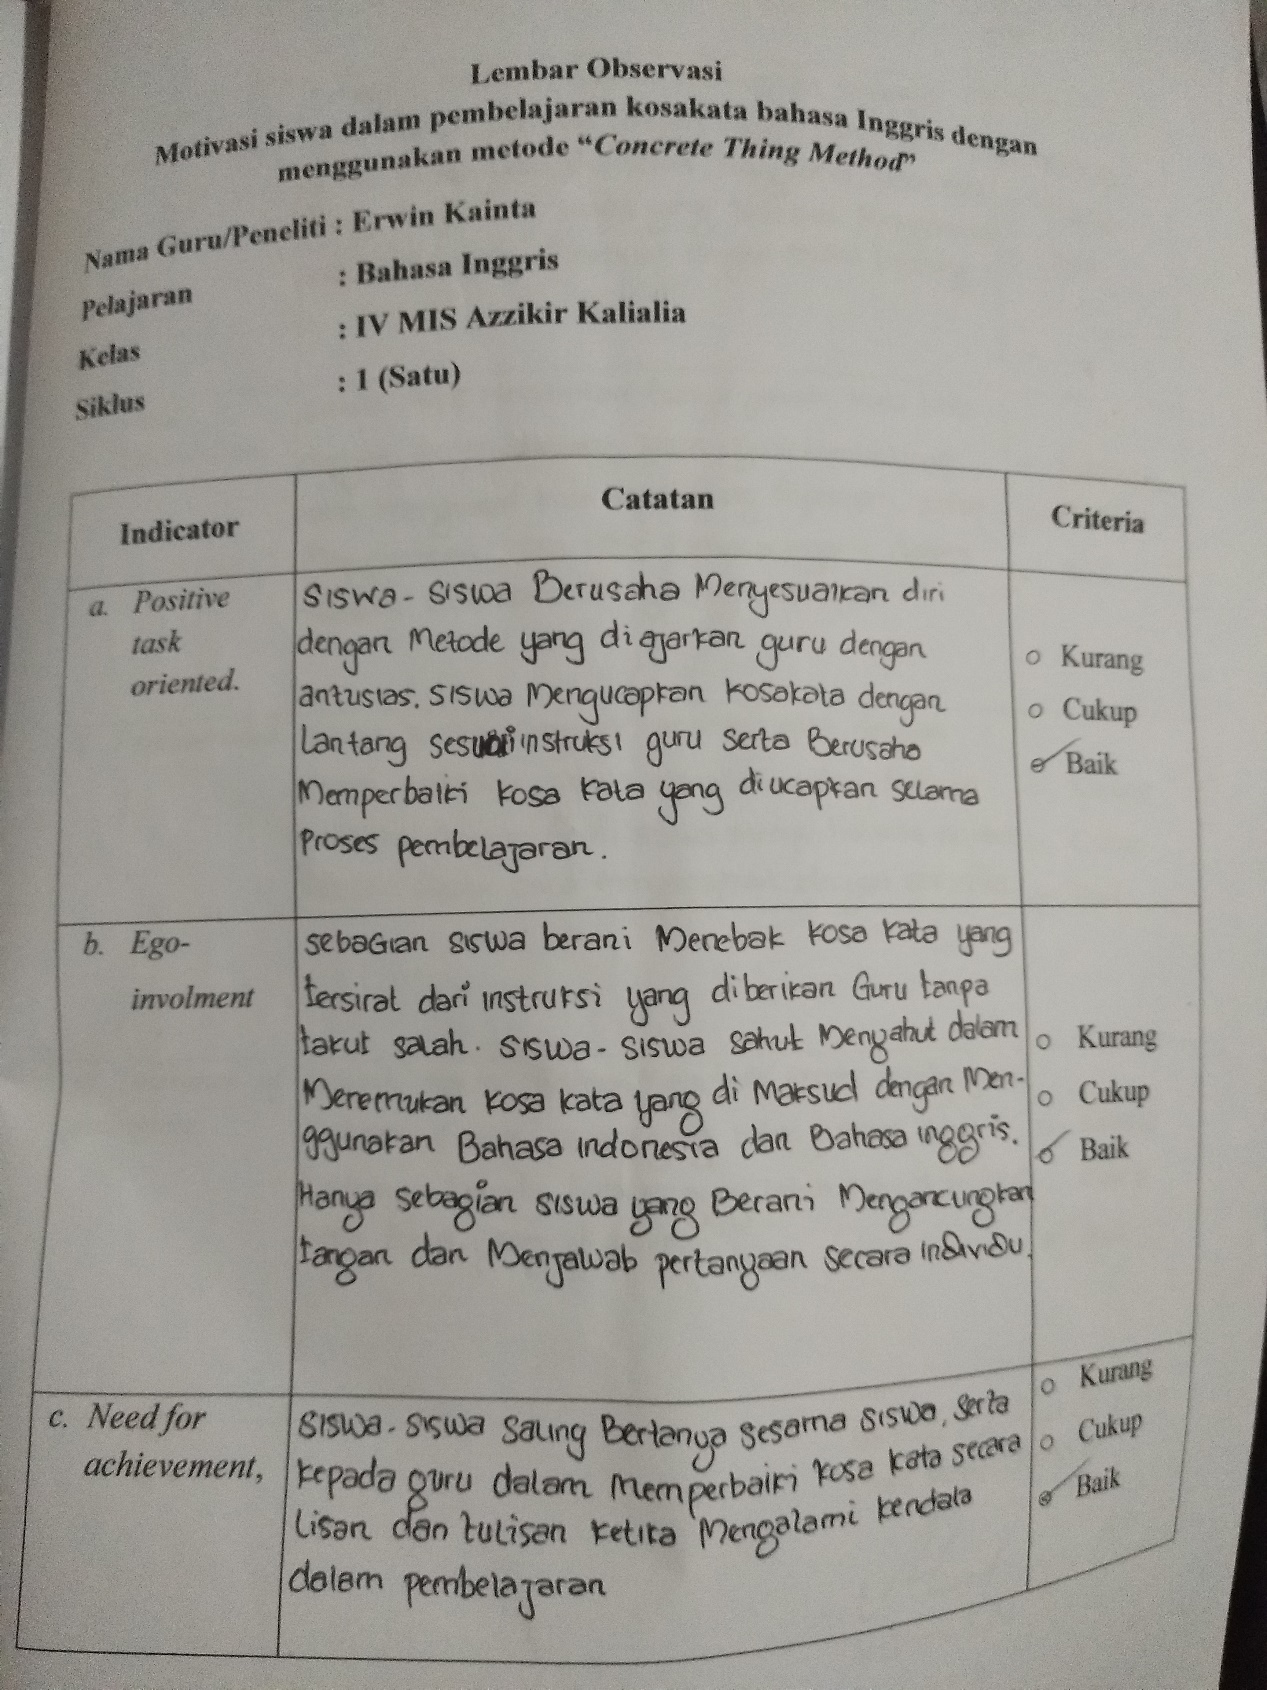 Lembar Observasi
Motivasi siswa dalam pembelajaran kosakata bahasa Inggris dengan
menggunakan metode “Concrete Thing Method”
Nama Guru/Peneliti : Erwin Kainta
Pelajaran : Bahasa Inggris
Kelas : IV MIS Azzikir Kalialia
Siklus : 1 (Satu)
Indicator Catatan Criteria
a. Positive
task
oriented.
Siswa - siswa Berusaha Menyesuaikan diri
dengan Metode yang di ajarkan guru dengan
antusias. siswa Mengucapkan kosakata dengan
Lantang sesuai instruksi guru serta Berusaha
Memperbaiki kosa kata yang diucapkan selama
Proses pembelajaran.
Kurang
Cukup
Baik
b. Ego-
involment
sebagian siswa berani Menebak kosa kata yang
tersirat dari instruksi yang diberikan Guru tanpa
takut salah. siswa - siswa sahut Menyahut dalam
Meremukan kosa kata yang di Maksud dengan Men-
ggunakan Bahasa indonesia dan Bahasa inggris.
Hanya sebagian siswa yang Berani Mengancungkan
tangan dan Menjawab pertanyaan secara individu.
Kurang
Cukup
Baik
c. Need for
achievement,
siswa - siswa saling Bertanya sesama siswa, serta
kepada guru dalam Memperbaiki kosa kata secara
Lisan dan tulisan ketika Mengalami kendala
dalam pembelajaran
Kurang
Cukup
Baik